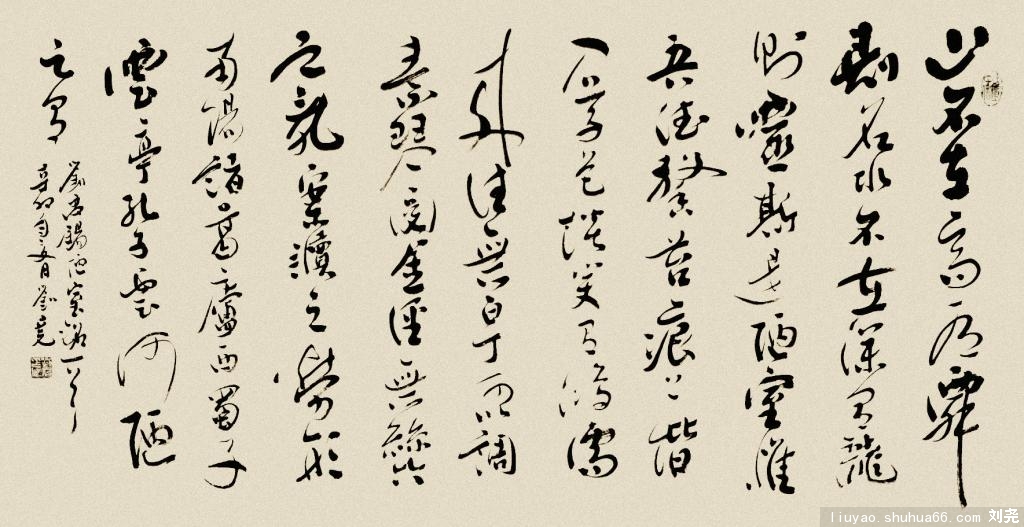 山不在高有僊
則名水不在深有龍
則靈斯是陋室惟
吾德馨苔痕上階
草色談笑有鴻儒
來往無白丁可以調
素琴閱金經無絲竹
之亂案牘之勞形
南陽諸葛廬西蜀子
雲亭孔子雲何陋
之有
劉禹錫陋室銘一首
辛卯年 月劉堯
liuyao shuhua66.com 刘尧